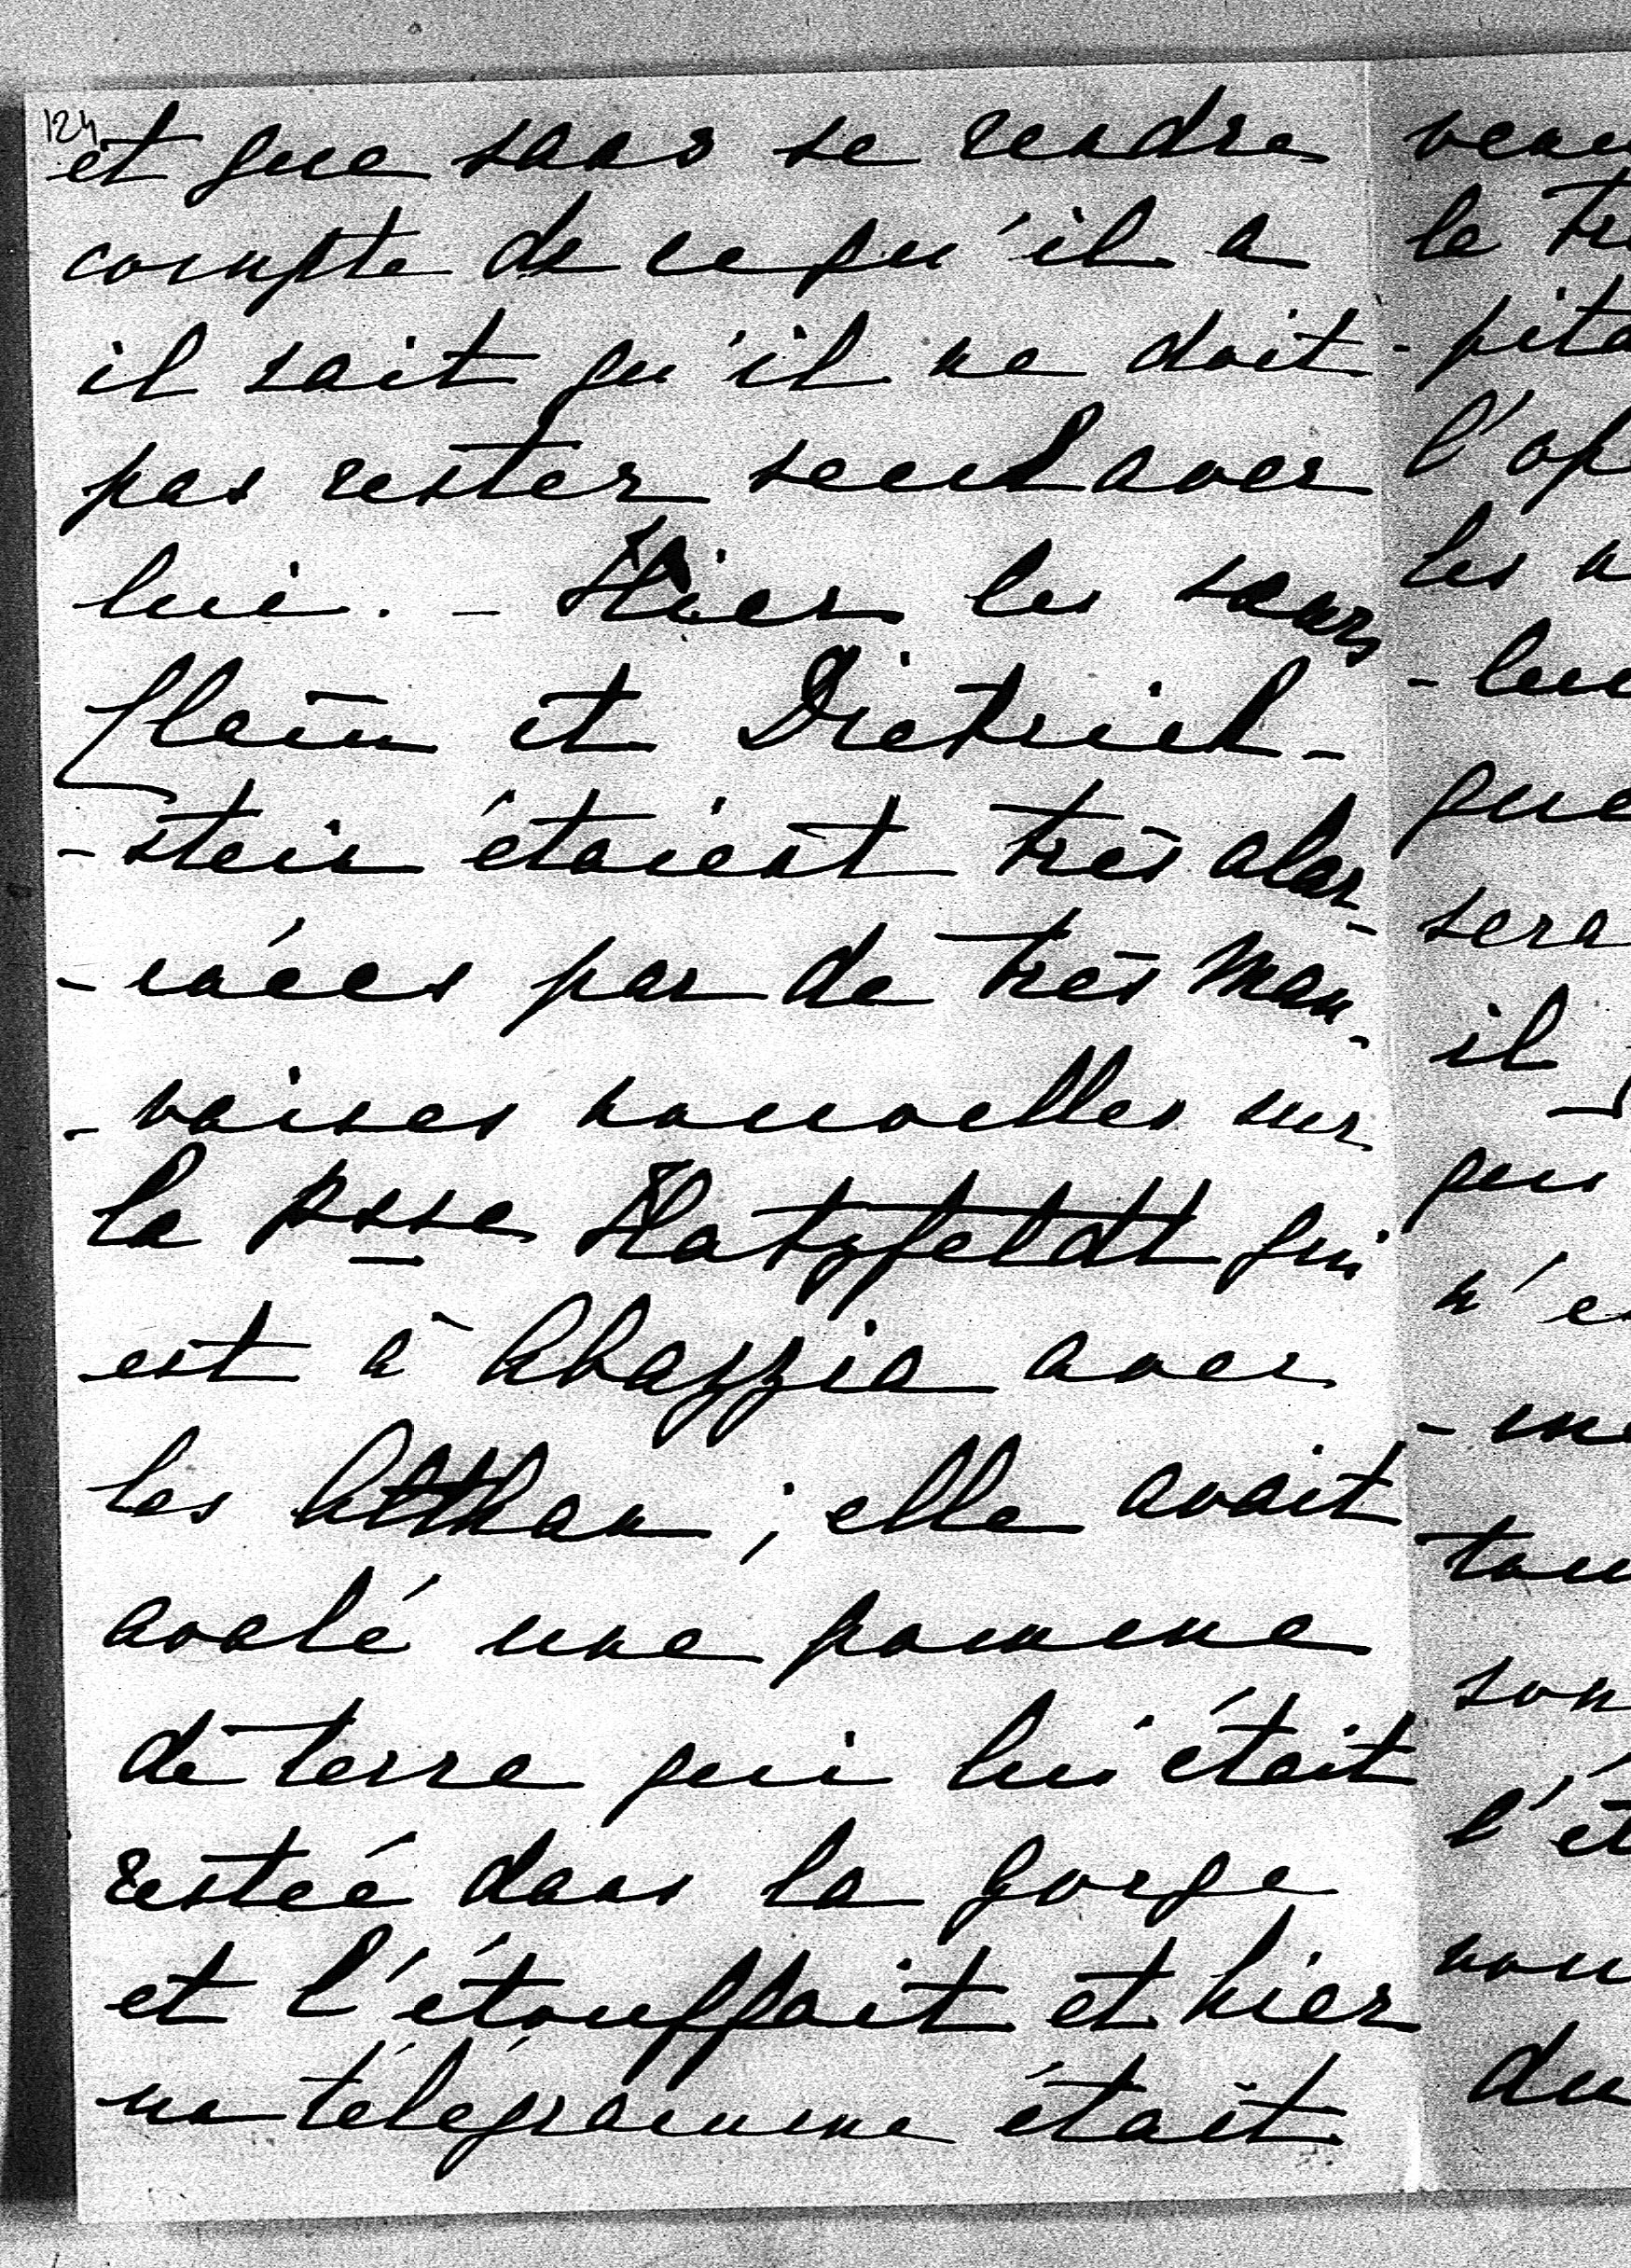 124
et que sans se rendre
compte de ce qu'il a
il sait qu'il ne doit
pas rester seul avec
lui. – Hier les sœurs
et Dietrich-
-stein étaient très alar-
-mées par de très mau-
-vaises nouvelles sur
la Psse Hatzfeldt qui
est à Abazzia avec
les Althan ; elle avait
avalé une pomme
de terre qui lui était
restée dans la gorge
et l'étouffait et hier
un télégramme était
la
l'op
les
-lui
que
sera
il
n'e
son
l'ét
du